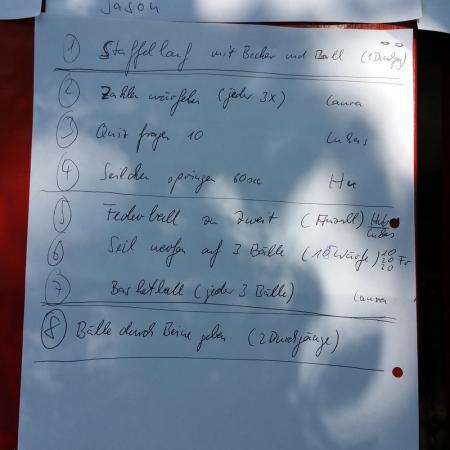 Jason
1 Staffellauf mit Becher und Ball (1 Durchg)
2 Zahlen würfeln (jeder 3x) Laura
3 Quiz fragen 10 Lukas
4 Seilchen springen 60sec
5 Federball zu zweit (Anzahl) Lukas
6 Seil werfen auf 3 Bälle (10 Würfe) 10 10 10
7 Basketball (jeder 3 Bälle) Laura
8 Bälle durch Beine geben (2 Durchgänge)